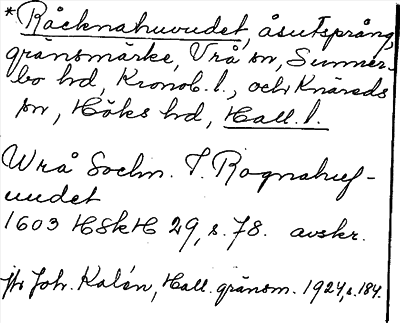 *Råcknahuvudet, åsutsprång,
gränsmärke, Vrå sn, Sunner-
bo hd, Kronob. l., och Knäreds
sn, Höks hd, Hall. l.
Wrå Sochn. T. Rognahuf-
uudet
1603 HSkH 29, s. 78. avskr.
Joh. Kalén, Hall. gränsm. 1924, s. 184.